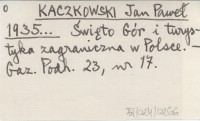 o KACZKOWSKI Jan Paweł
1935... Święto Gór i turys-
tyka zagraniczna w Polsce. –
Gaz. Podr. 23, nr 17.